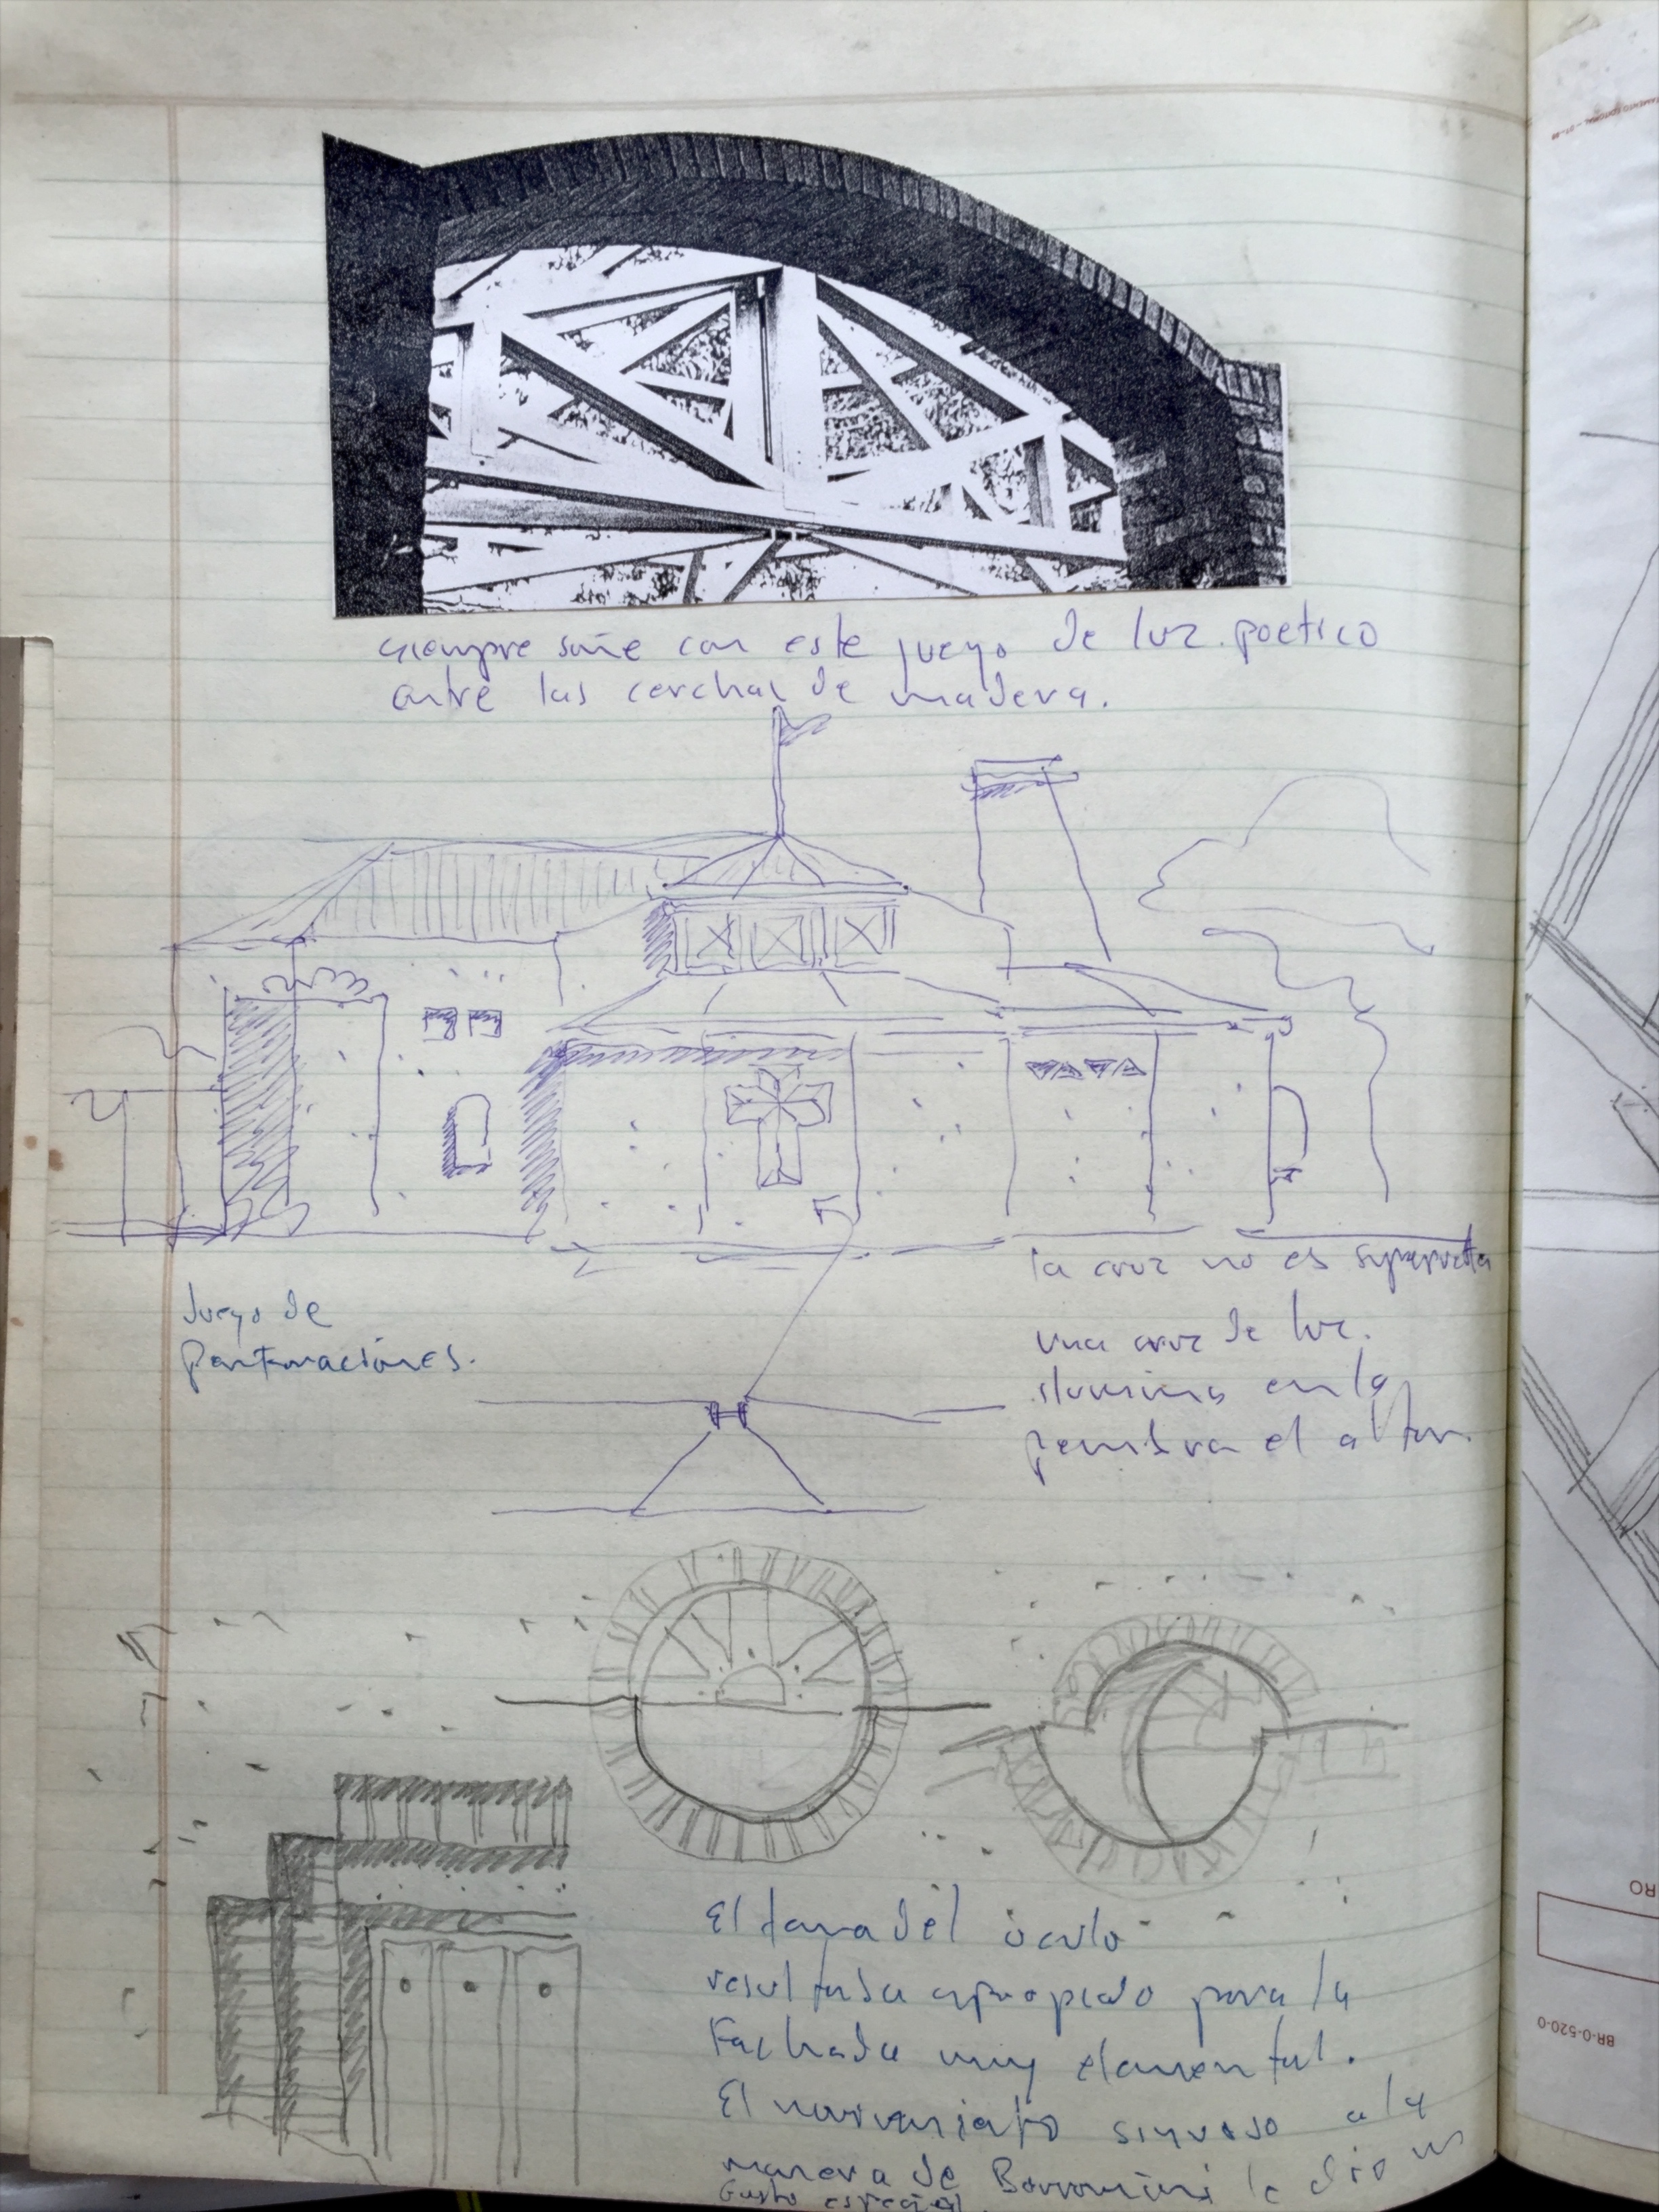 siempre soñe con este juego de luz poetico
entre las cerchas de madera.
la cruz no es superpuesta
Juego de
perforaciones.
una cruz de luz.
ilumina en la
penumbra el altar.
El tema del óculo
resultaba apropiado para la
Fachada muy elemental.
El movimiento sinuoso a la
manera de Borromini le dio un
Gusto especial.
BR-0-520-0